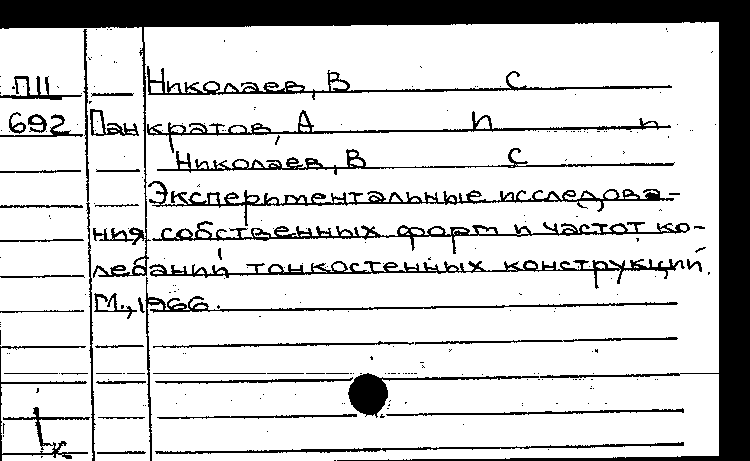 П11 Николаев, В С
692 Панкратов, А П и
Николаев, В С
Экспериментальные исследова-
ния собственных форм и частот ко-
лебаний тонкостенных конструкций.
М., 1966.